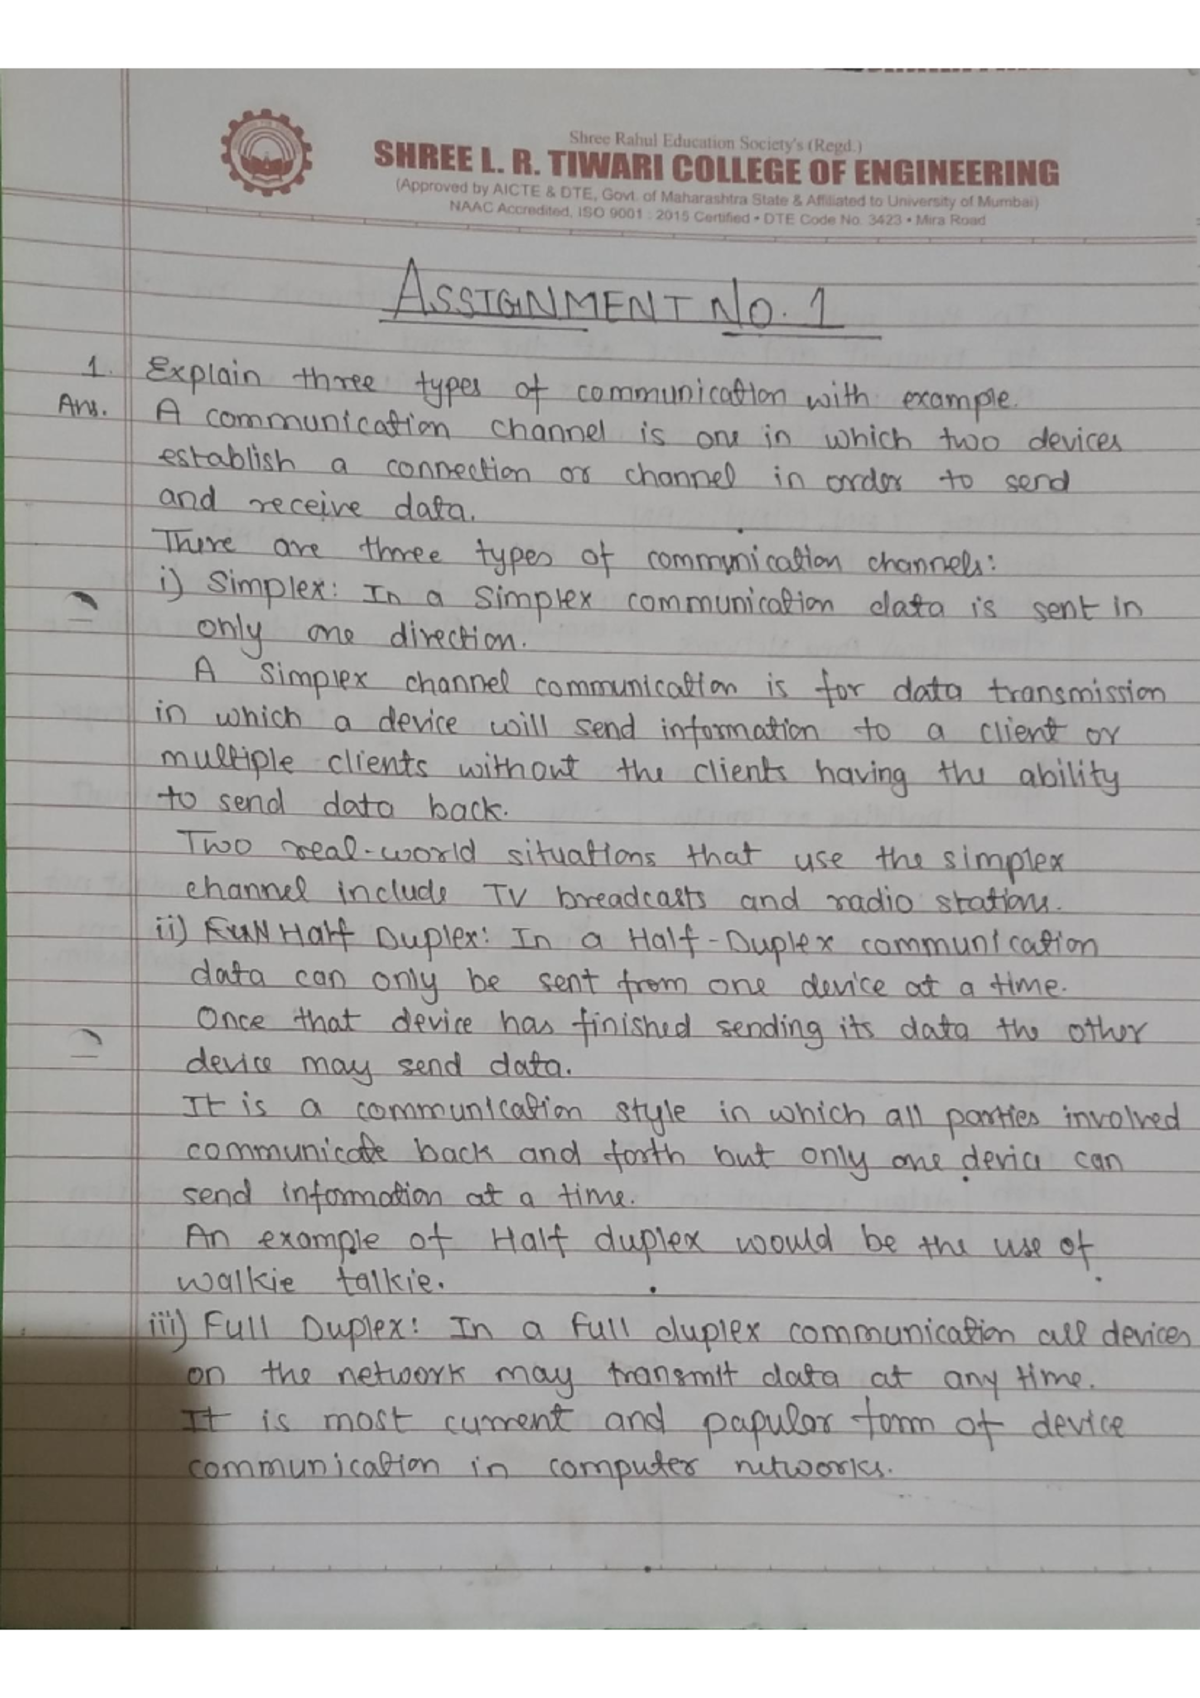 Shree Rahul Education Society's (Regd.)
SHREE L. R. TIWARI COLLEGE OF ENGINEERING
(Approved by AICTE & DTE, Govt. of Maharashtra State & Affiliated to University of Mumbai)
NAAC Accredited, ISO 9001 : 2015 Certified • DTE Code No. 3423 • Mira Road
ASSIGNMENT NO. 1
1. Explain three types of communication with example.
Ans. A communication channel is one in which two devices
establish a connection or channel in order to send
and receive data.
There are three types of communication channels:
i) Simplex: In a simplex communication data is sent in
only one direction.
A simplex channel communication is for data transmission
in which a device will send information to a client or
multiple clients without the clients having the ability
to send data back.
Two real-world situations that use the simplex
channel include TV breadcasts and radio stations.
ii) Half Duplex: In a Half-Duplex communication
data can only be sent from one device at a time.
Once that device has finished sending its data the other
device may send data.
It is a communication style in which all parties involved
communicate back and forth but only one device can
send information at a time.
An example of Half duplex would be the use of
walkie talkie.
iii) Full Duplex: In a full duplex communication all devices
on the network may transmit data at any time.
It is most current and papular form of device
communication in computer networks.